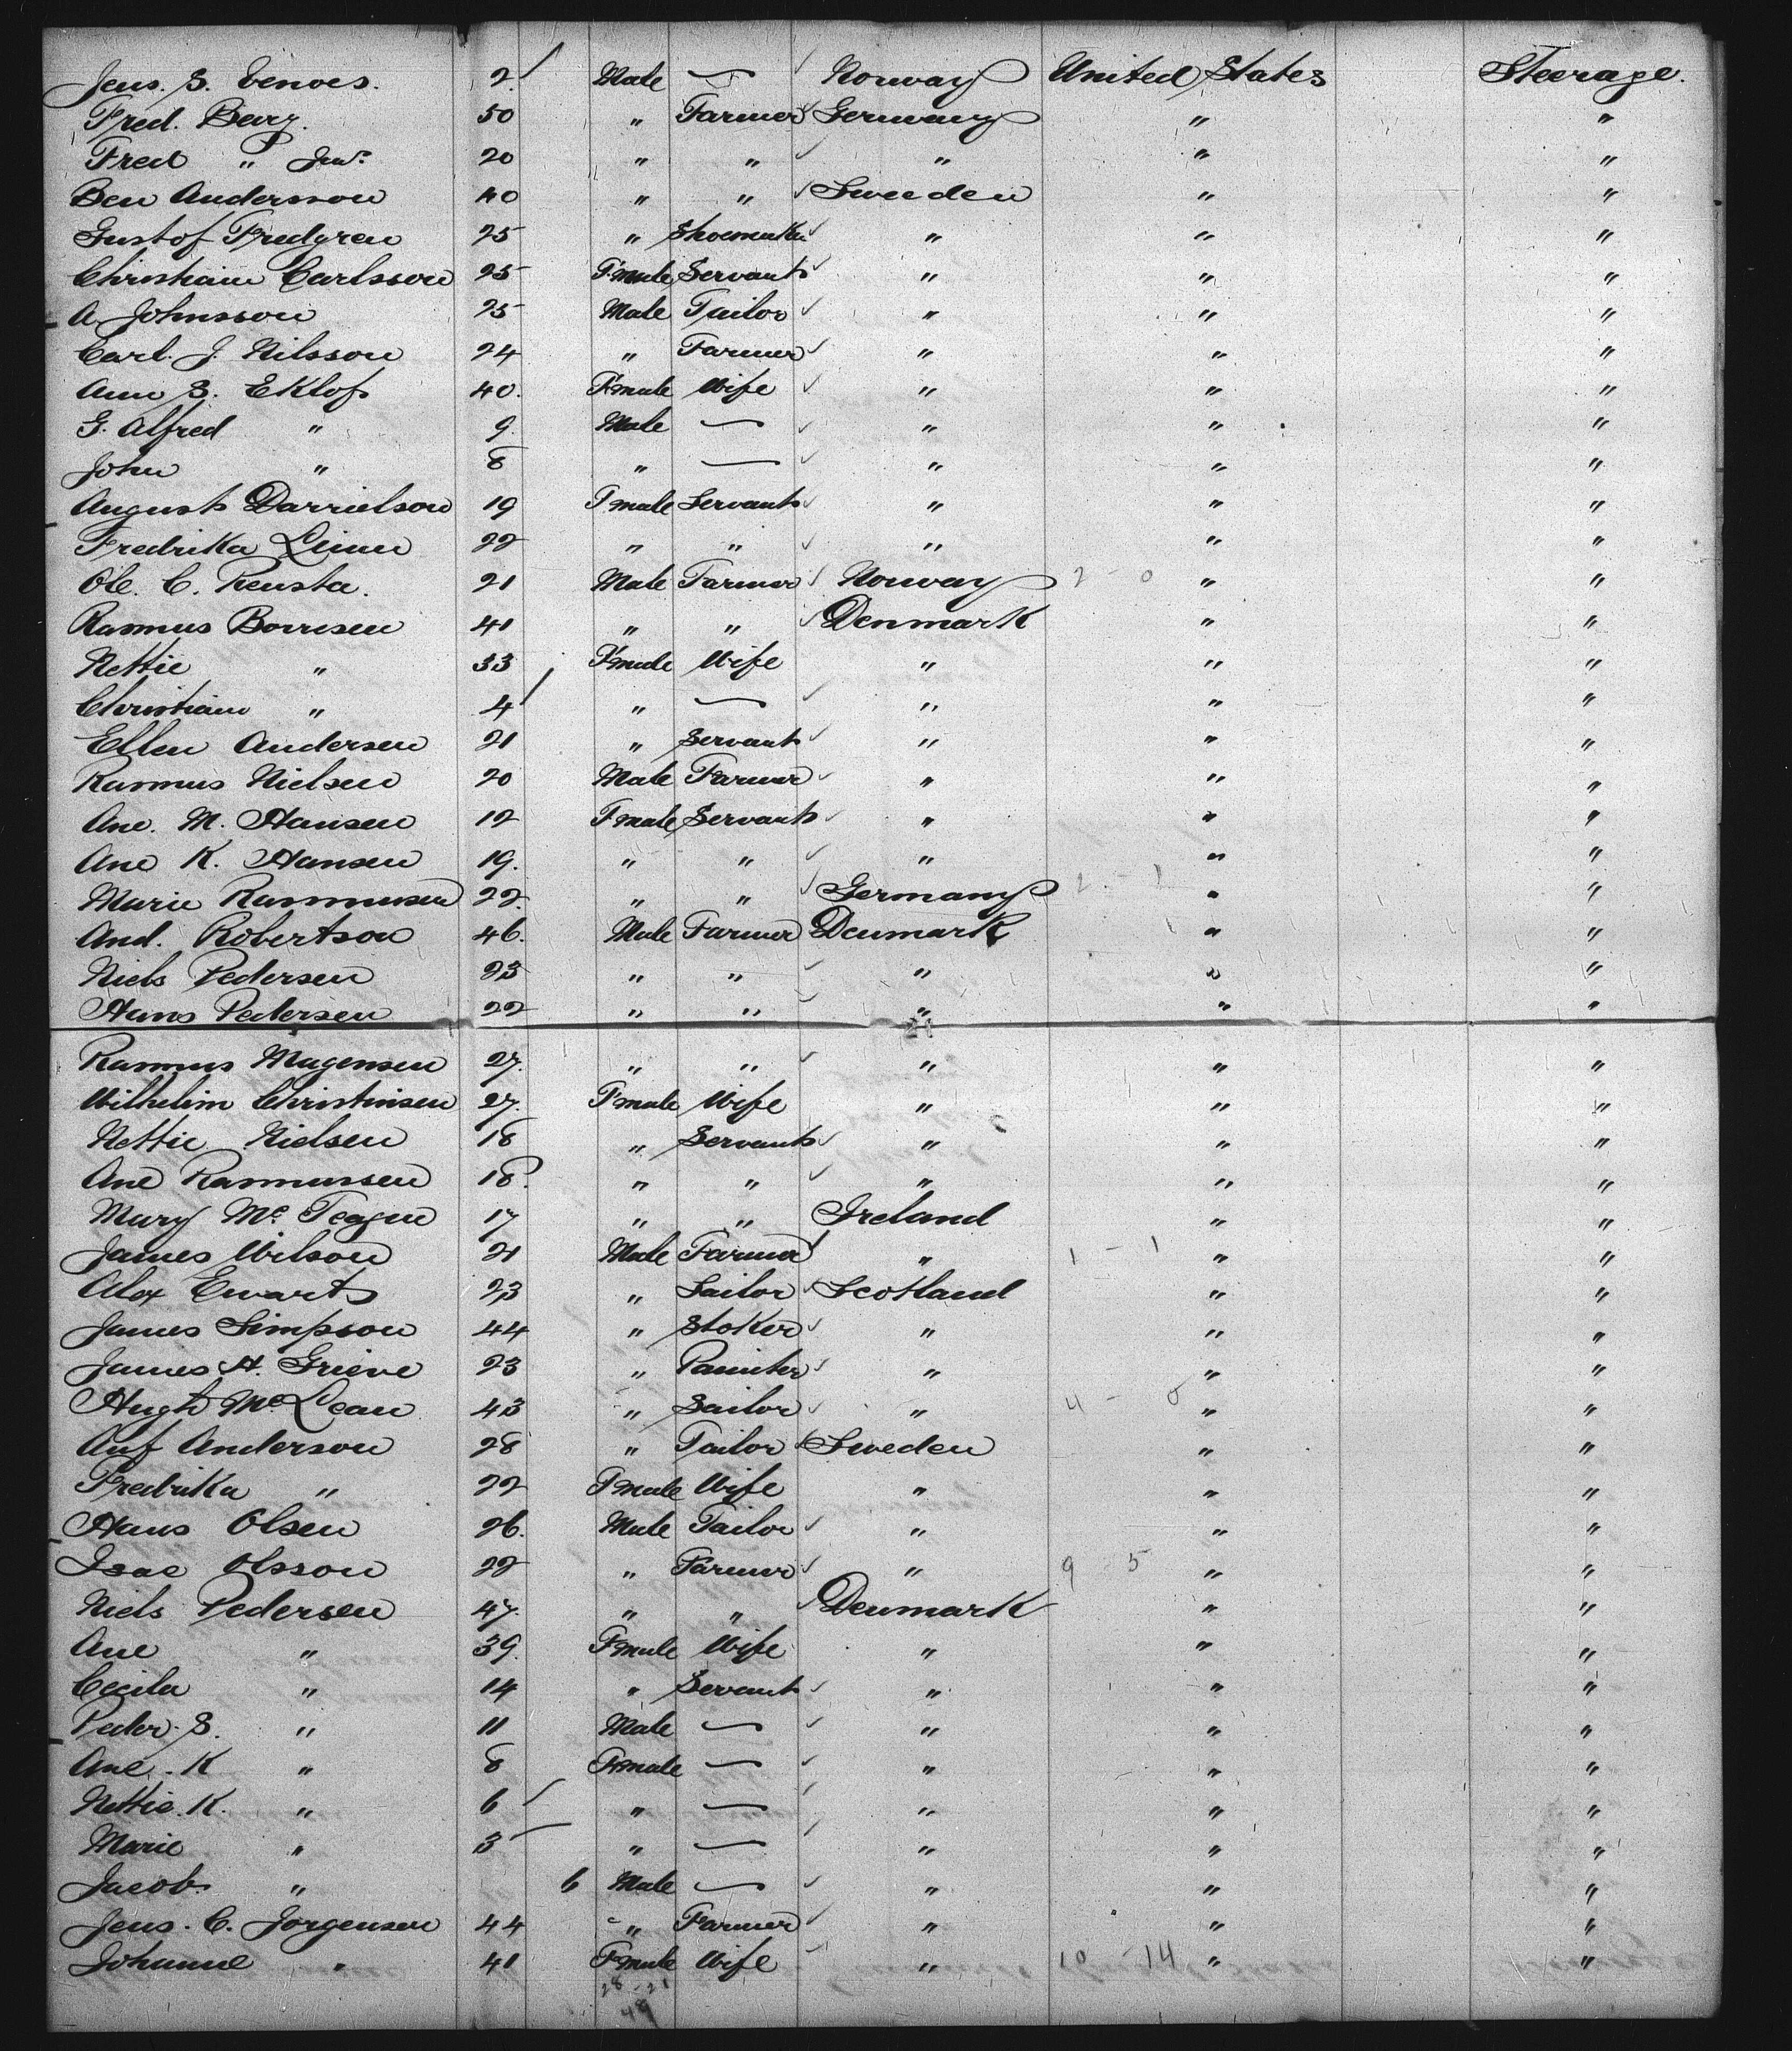 Jens. S. Venoes. 2. Male — Norway United States Steerage.
Fred. Berg. 50 " Farmer Germany " "
Fred " Jun. 20 " " " " "
Ben Andersson 40 " " Sweeden " "
Gustof Fredgren 25 " Shoemaker " " "
Christiain Carlsson 25 F.male Servant " " "
A. Johnsson 25 Male Tailor " " "
Carl. J. Nilsson 24 " Farmer " " "
Ann S. Eklof 40. F.male Wife " " "
G. Alfred " 9. Male — " " "
John " 8 " — " " "
August Darrielson 19 F.male Servant " " "
Fredrika Linn 22 " " " " "
Ole. C. Rensta. 21 Male Farmer Norway 2 - 0 " "
Rasmus Borresen 41 " " Denmark " "
Nettie " 33 F.male Wife " " "
Christian " 4 " — " " "
Ellen Andersen 21 " Servant " " "
Rasmus Nielsen 20 Male Farmer " " "
Ane. M. Hansen 12 F.male Servant " " "
Ane K. Hansen 19. " " " " "
Marie Rasmussen 22. " " Germany 2 - 1 " "
And. Robertson 46. Male Farmer Denmark " "
Niels Pedersen 23 " " " " "
Hans Pedersen 22 " " " " "
Rasmus Magensen 27. " " " " "
Wilhelim Christinsen 27. F.male Wife " " "
Nettie Nielsen 18 " Servant " " "
Ane Rasmussen 18. " " " " "
Mary Mc. Teague 17 " " Ireland " "
James Wilson 21 Male Farmer " 1 - 1 " "
Alex Ewart 23 " Sailor Scotland " "
James Simpson 44 " Stoker " " "
James H. Grieve 23 " Painter " " "
Hugh McLean 43 " Sailor " 4 - 0 " "
Auf Anderson 28 " Tailor Sweden " "
Fredrika " 22 F.male Wife " " "
Hans Olsen 26. Male Tailor " " "
Isac Olsson 22 " Farmer " 9 - 5 " "
Niels Pedersen 47. " " Denmark " "
Ane " 39. F.male Wife " " "
Cecila " 14 " Servant " " "
Peder. S. " 11 Male — " " "
Ane. K " 8 F.male — " " "
Nettie. K. " 6 " — " " "
Marie " 3 " — " " "
Jacob. " 6 Male — " " "
Jens. C. Jorgensen 44 " Farmer " " "
Johanne " 41 F.male Wife " 10 - 14 " "
28 - 21
49